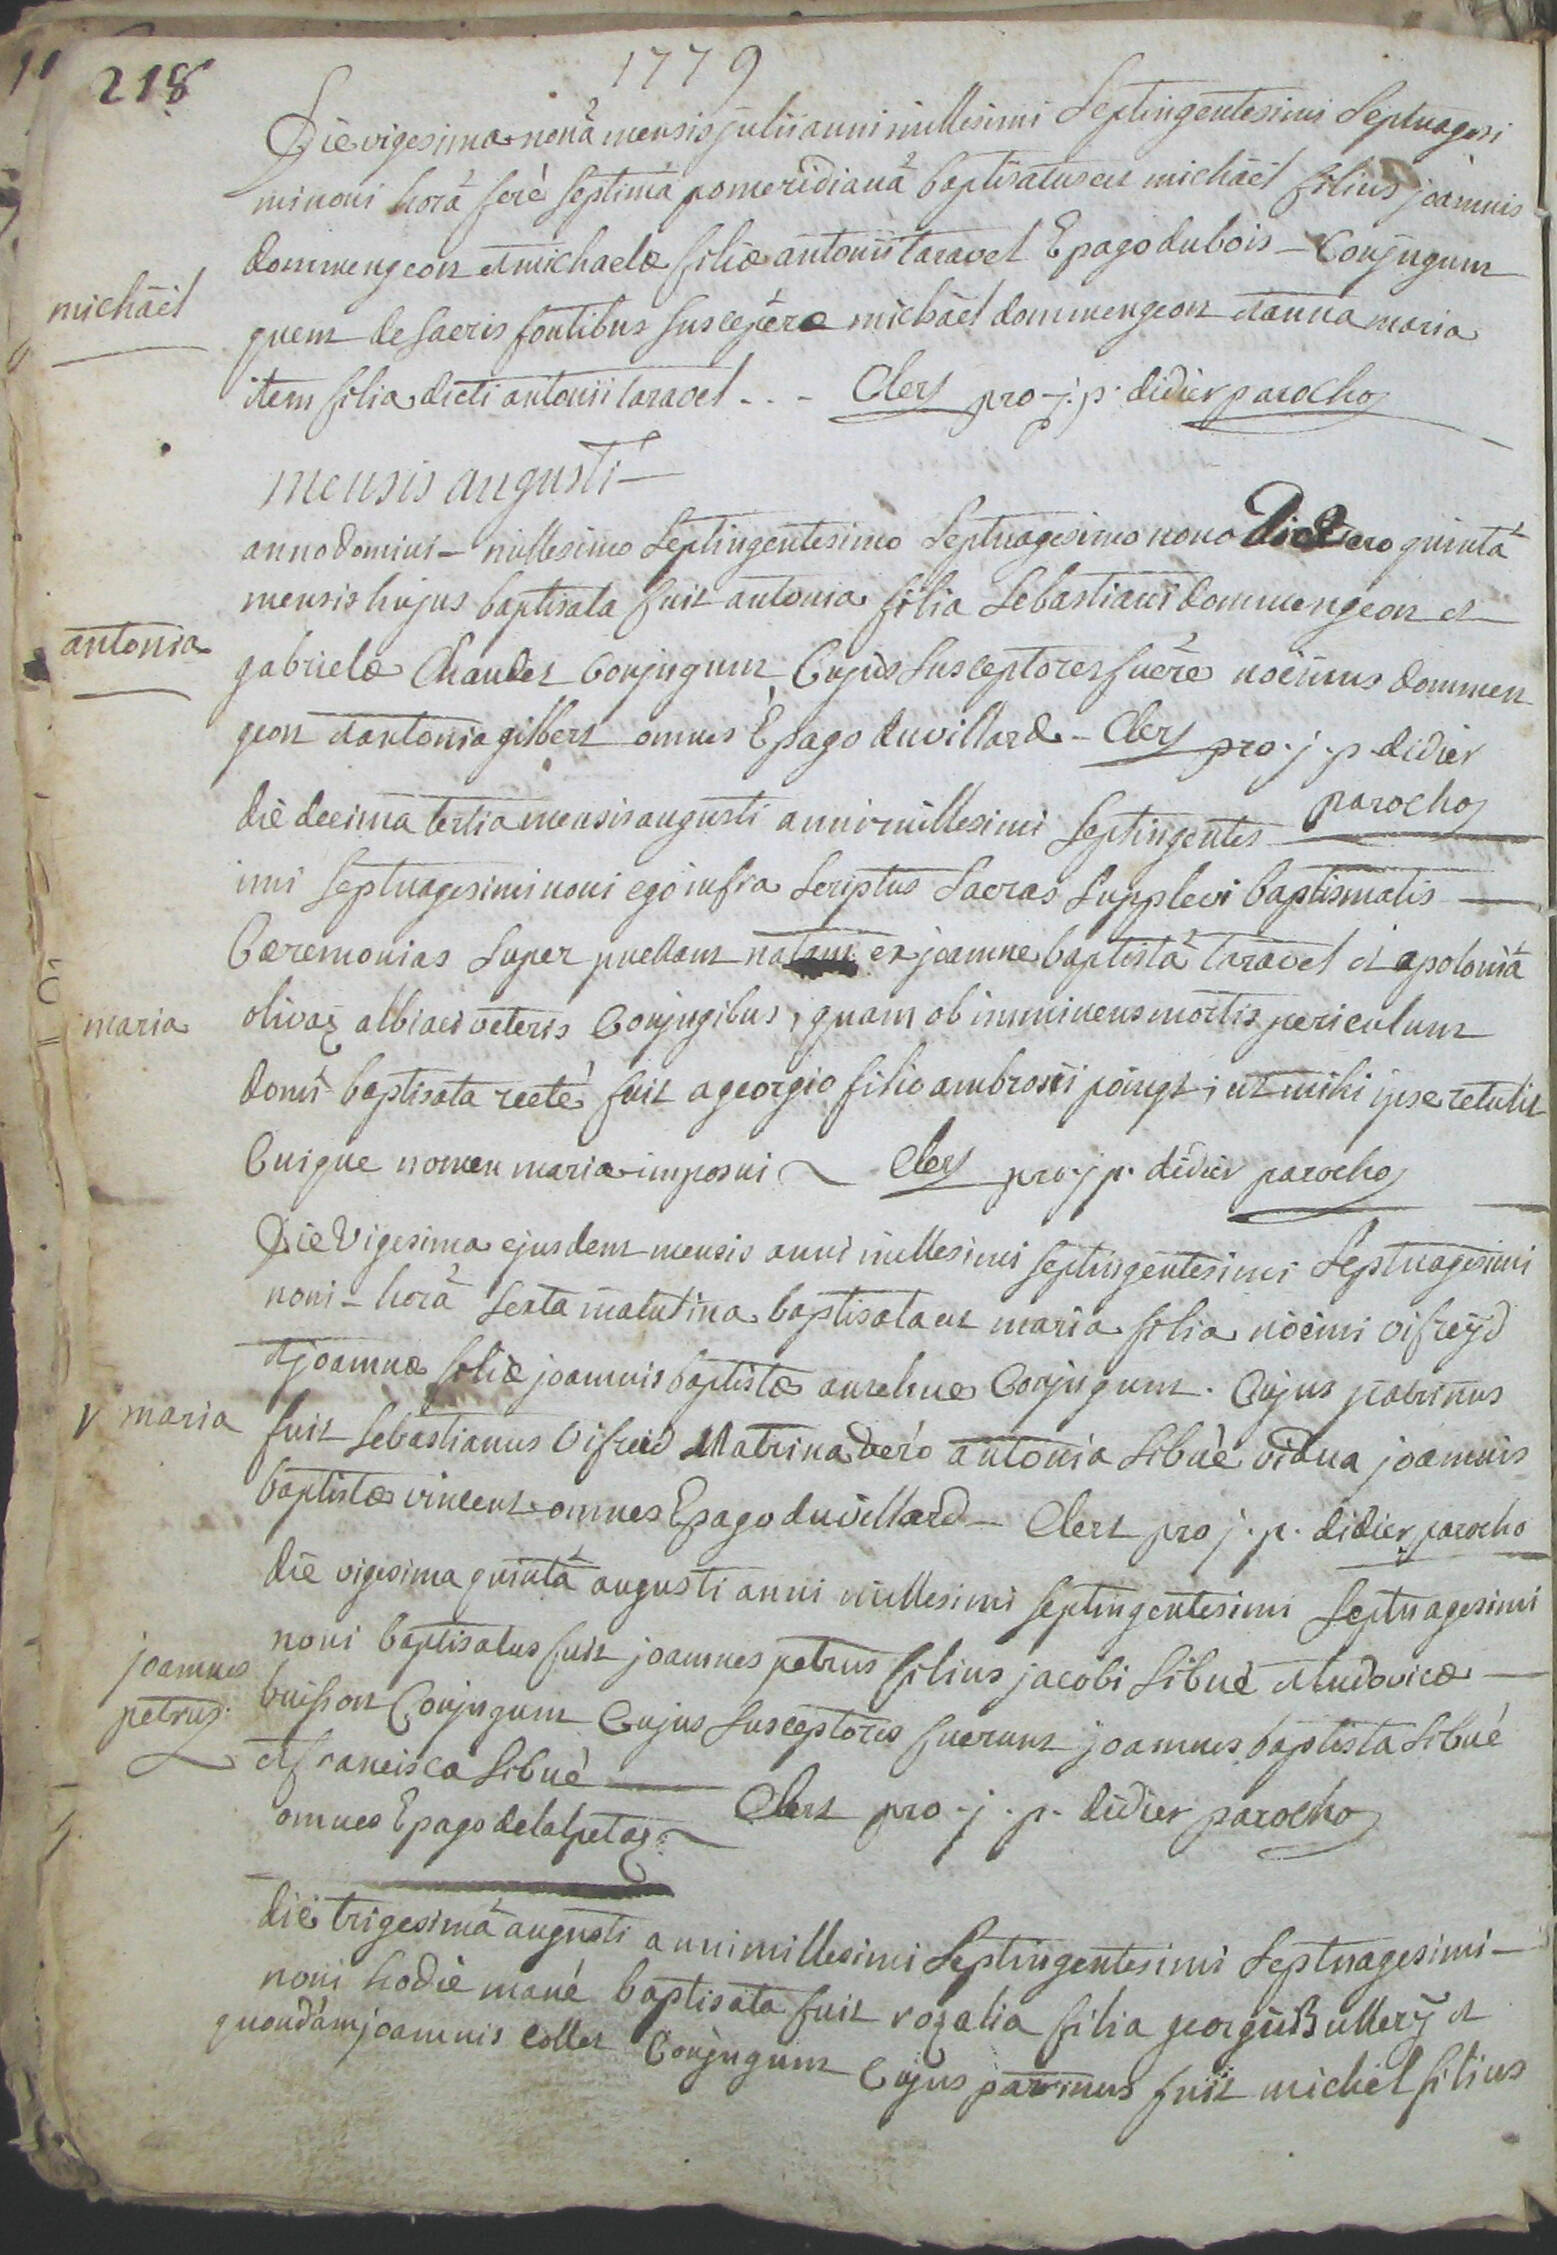 218
1779
Die vigesima nonâ mensis julii anni millesimi Septingentesimi Septuagesi
mi noni horâ ferè septimâ pomeridianâ baptisatus est michäel filius joannis
dommengeon et michaelæ filiæ antonii taravel E pago du bois – Conjugum
michäel
quem de sacris fontibus suscepêre michäel dommengeon et anna maria
item filia dicti antonii taravel . . – Clert pro j. p. didier parocho
mensis augusti –
anno domini – millesimo Septingentesimo Septuagesimo nono Die vero quintâ
mensis hujus baptisata fuit antonia filia Sebastiani dommengeon et
antonia
gabrielæ Chaudet Conjugum Cujus susceptores fuêre noëmus dommen
geon et antonia gilbert omnes E pago du villard – Clert pro j. p. didier
parocho
die decima tertia mensis augusti anni millesimi Septingentes
imi Septuagesimi noni ego infra scriptus Sacras Supplevi baptismatis –
Cæremonias Super puellam natam ex joanne baptistâ taravel et apoloniâ
maria
olivaz albiaci veteris Conjugibus, quam ob imminens mortis periculum
domi baptisata rectè fuit a georgio filio ambrosii points ut mihi ipse retulit
Cuique nomen maria imposui ~ Clert pro j. p. didier parocho
Die Vigesima ejusdem mensis anni millesimi Septingentesimi Septuagesimi
noni – horâ Sexta matutina baptisata est maria filia noëmi vifreÿd
et joannæ filiæ joannis baptistæ Conjugum. Cujus patrinus
v maria
fuit Sebastianus Vifreid Matrina verò antonia Sibuè vidua joannis
baptistæ vincent omnes E pago du villard – Clert pro j. p. didier parocho
die vigesima quintâ augusti anni millesimi Septingentesimi Septuagesimi
noni baptisatus fuit joannes petrus filius jacobi Sibuè et ludovicæ –
joannes
petrus
buisson Conjugum Cujus Susceptores fuerunt joannes baptista Sibuè
et francisca Sibuè
omnes E pago de lalpetaz ~ Clert pro j. p. didier parocho
die trigesimâ augusti anni millesimi Septingentesimi Septuagesimi –
noni hodiè manè baptisata fuit rozalia filia georgii Bullerÿ et
quondàm joannis collet Conjugum Cujus patrinus fuit michel filius